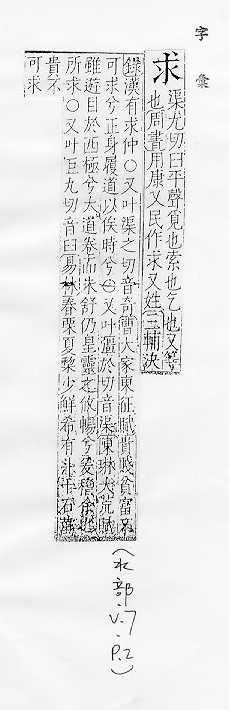 字彙
求
渠尤切臼平聲覓也索也乞也又等
也周書用康乂民作求又姓三輔決
錄漢有求仲○又叶渠之切音奇曹大家東征賦貴賤貧富不
可求兮正身履道以俟時兮○又叶彊於切音渠陳琳大荒賦
雖遊目於西極兮大道卷而未舒仍皇靈之攸暢兮爰稽余
所求○又叶巨九切音臼易林春栗夏棃少鮮希有斗千石萬
貴不
可求
(水部.V.7.P.2)